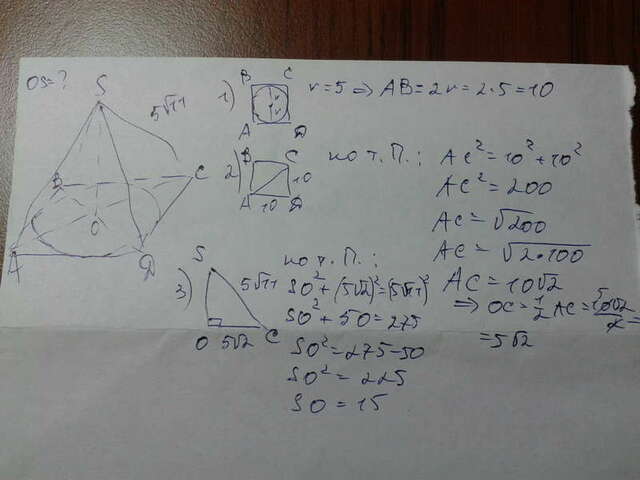 OS=?
S
5√11
B
C
O
A
D
1)
B C
r
r
A D
r=5 => AB=2r=2·5=10
2)
B C
10
A 10 D
по т. П.:
AC²=10²+10²
AC²=200
AC=√200
AC=√2·100
AC=10√2
=> OC=1/2 AC=10√2/2=
=5√2
3)
S
5√11
O 5√2 C
по т. П.:
SO²+(5√2)²=(5√11)²
SO²+50=275
SO²=275-50
SO²=225
SO=15